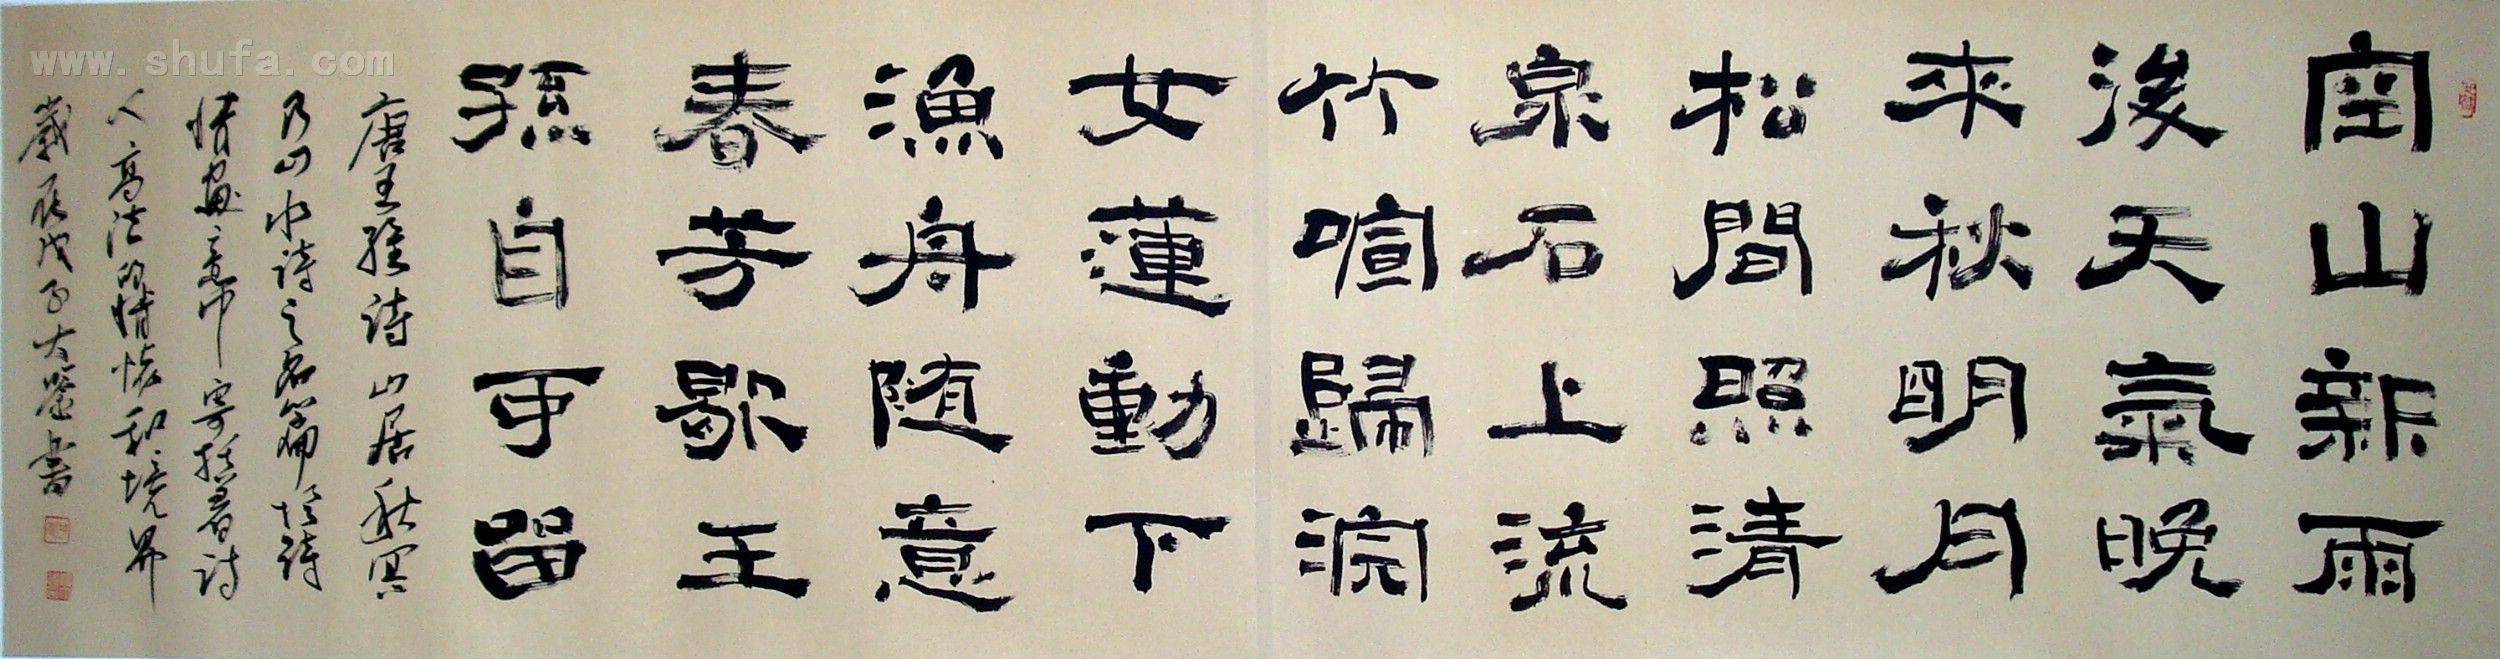 空山新雨
後天氣晚
來秋明月
松間照清
泉石上流
竹喧歸浣
女蓮動下
漁舟随意
春芳歇王
孫自可留
唐王維詩山居秋暝
乃山水詩之名篇於詩
情畫意中寄託着詩
人高洁的情懷和境界
歲在戊子大書
www.shufa.com